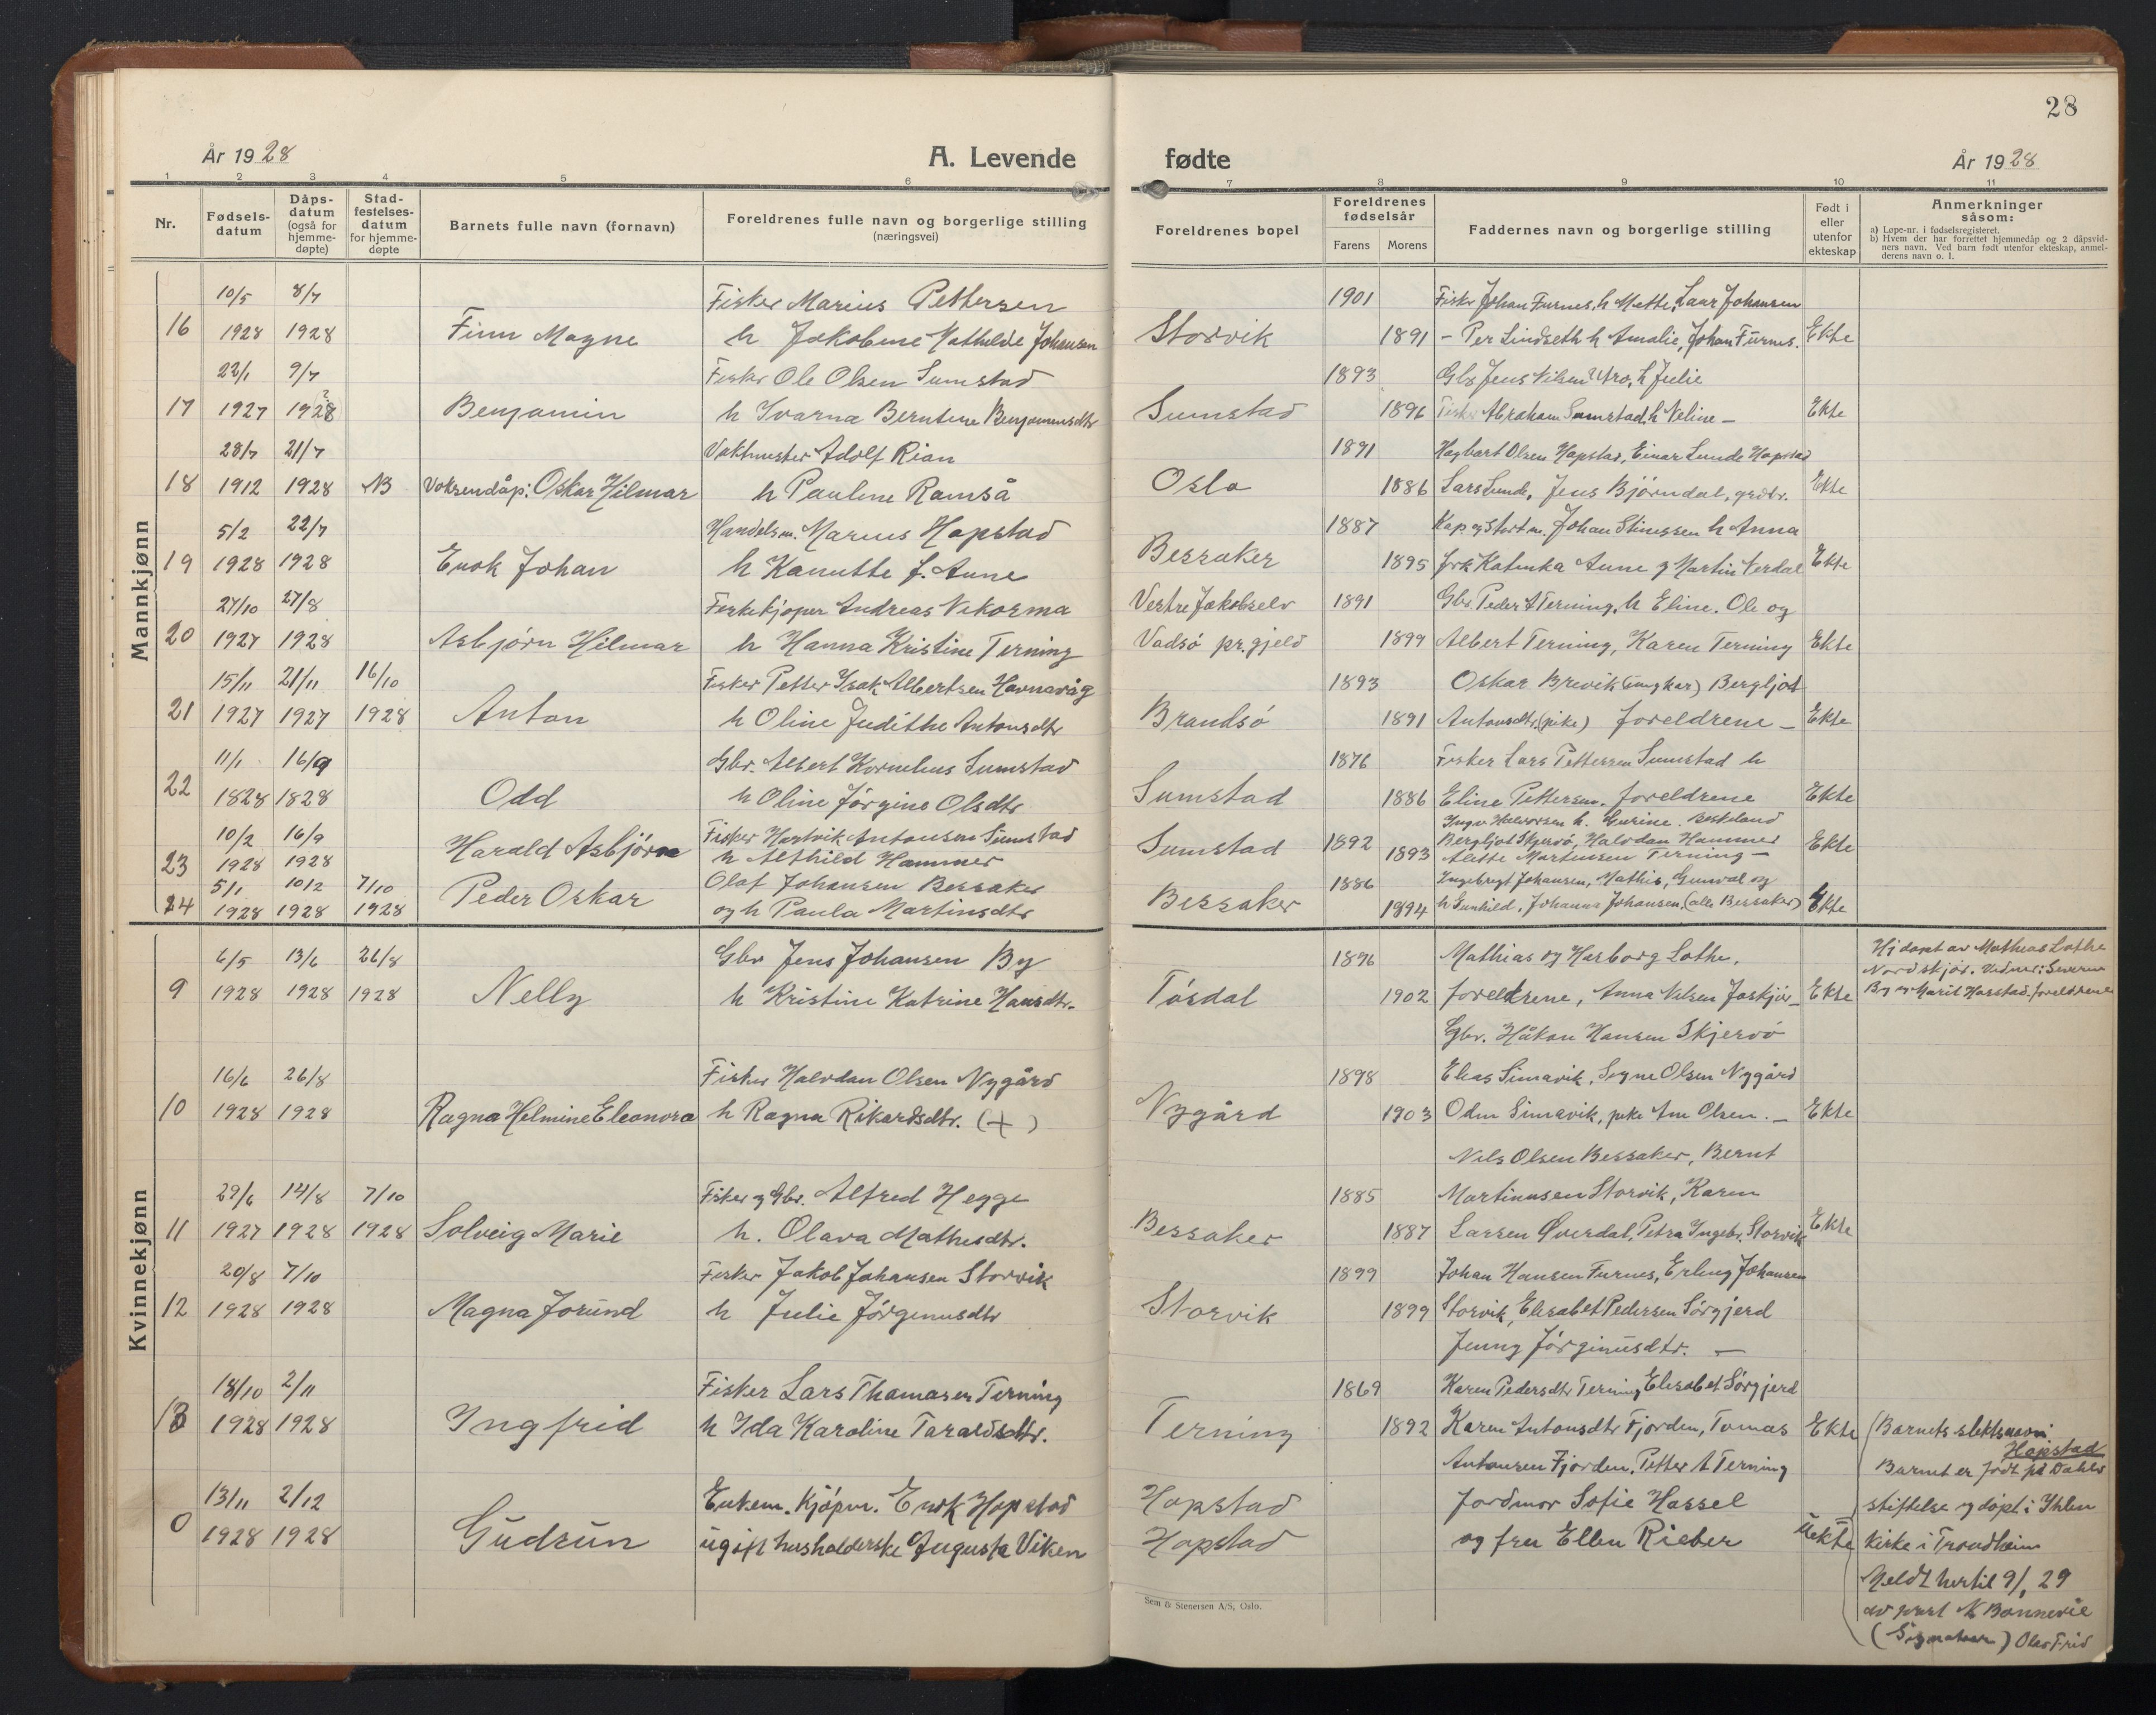 28
År 1928
A. Levende
fødte
År 1928
1 2 3 4 5 6 7 8 9 10 11
Nr.
Fødsels-
datum
Dåps-
datum
(også for
hjemme-
døpte)
Stad-
festelses-
datum
for hjemme-
døpte
Barnets fulle navn (fornavn)
Foreldrenes fulle navn og borgerlige stilling
(næringsvei)
Foreldrenes bopel
Foreldrenes
fødselsår
Farens
Morens
Faddernes navn og borgerlige stilling
Født i
eller
utenfor
ekteskap
Anmerkninger
såsom:
a) Løpe-nr. i fødselsregisteret.
b) Hvem der har forrettet hjemmedåp og 2 dåpsvid-
ners navn. Ved barn født utenfor ekteskap, anmel-
derens navn o. l.
Mannkjønn
10/5 8/7 Fisker Marius Pettersen 1901 Fisker Johan Furnes, h Mette, Laur Johansen
16 1928 1928 Finn Magne h Jakobine Mathilde Johansen Storvik 1891 - Per Lindseth h Amalie, Johan Furnes. Ekte
22/1 9/7 Fisker Ole Olsen Sumstad 1893 Gbr Jens Nilsen Uro, h Julie
17 1927 1928 Benjamin h Ivarna Berntine Benjaminsdtr Sumstad 1896 Fisker Abraham Sumstad h Neline - Ekte
28/7 21/7 Vaktmester Adolf Rian 1891 Hagbart Olsen Hopstad, Einar Lunde Hopstad
18 1912 1928 NB Voksendåp: Oskar Hilmar h Pauline Ramså Oslo 1886 Lars Lunde, Jens Bjørndal, grdbr. Ekte
5/2 22/7 Handelsm. Marius Hopstad 1887 Kap og Stortm. Johan Stinessen h Anna
19 1928 1928 Enok Johan h Kanutte f. Aune Bessaker 1895 frk Katinka Aune og Martin Verdal Ekte
27/10 27/8 Fiskekjøper Andreas Nikorma Vestre Jakobselv 1891 Gbr. Peder A Terning, h Eline. Ole og
20 1927 1928 Asbjørn Hilmar h Hanna Kristine Terning Vadsø pr.gjeld 1899 Albert Terning, Karen Terning Ekte
15/11 21/11 16/10 Fisker Petter Isak Albertsen Havnsvåg 1893 Oskar Brevik (ungkar) Bergljot
21 1927 1927 1928 Anton h Oline Judithe Antonsdtr Brandsø 1891 Antonsdtr. (pike) foreldrene - Ekte
11/1 16/9 Gbr. Albert Kornelius Sumstad 1876 Fisker Lars Pettersen Sumstad h
22 1828 1828 Odd h Oline Jørgine Olsdtr Sumstad 1886 Eline Pettersen. foreldrene Ekte
Ingv Halvorsen h. Gurine. Beskeland
10/2 16/9 Fisker Hartvik Antonsen Sumstad Bergljot Skjervø, Halvdan Hammer
23 1928 1928 Harald Asbjørn h Althild Hammer Sumstad 1892 1893 Alette Martinsen Terning - Ekte
5/1 10/2 7/10 Olaf Johansen Bessaker 1886 Ingebrigt Johansen, Mathis, Gunval og
24 1928 1928 1928 Peder Oskar og h Paula Martinsdtr Bessaker 1894 h Gunhild, Johanna Johansen. (alle Bessaker) Ekte
Kvinnekjønn
6/5 13/6 26/8 Gbr Jens Johansen By 1896 Mathias og Hasborg Lothe. Hj døpt av Mathias Lothe
9 1928 1928 1928 Nelly h Kristine Katrine Hansdtr. Tøsdal 1902 foreldrene, Anna Nilsen Joskjør - Ekte Nordskjør. Vidner: Severin
By og Marit Harstad. foreldrene
Gbr. Håkon Hansen Skjervø
16/6 26/8 Fisker Halvdan Olsen Nygård 1898 Elias Simavik, Signe Olsen Nygård
10 1928 1928 Ragna Helmine Eleonora h Ragna Rikardsdtr. (+) Nygård 1903 Odin Simavik, pike Ane Olsen. - Ekte
Nils Olsen Bessaker, Bernt
29/6 14/8 7/10 Fisker og Gbr. Alfred Hegge 1885 Martinusen Storvik, Karen
11 1927 1928 1928 Solveig Marie h. Olava Mathisdtr. Bessaker 1887 Larsen Øverdal, Petra Ingebr. Storvik Ekte
20/8 7/10 Fisker Jakob Johansen Storvik 1899 Johan Hansen Furnes, Erling Johansen
12 1928 1928 Magna Jorund h Julie Jørginusdtr Storvik 1899 Storvik, Elisabet Pedersen Sørgjerd
Jenny Jørginusdtr. -
18/10 2/11 Fisker Lars Thomasen Terning 1869 Karen Pedersdtr Terning Elisabet Sørgjerd
13 1928 1928 Ingfrid h Ida Karoline Taraldsdtr. Terning 1892 Karen Antonsdtr Fjorden, Tomas Ekte (Barnets slektsnavn
Hopstad
Antonsen Fjorden, Petter A Terning Barnet er født på Dahls
13/11 2/12 Enkem. Kjøpm. Enok Hopstad Hopstad Jordmor Sofie Hassel stiftelse og døpt i Ihlen
0 1928 1928 Gudrun ugift husholderske Augusta Viken Hopstad og fru Ellen Rieber Uekte kirke i Trondheim
Meldt hertil 9/1 29
av prest N Bonnevie
(Signatur) Olav Frid
Sem & Stenersen A/S, Oslo.